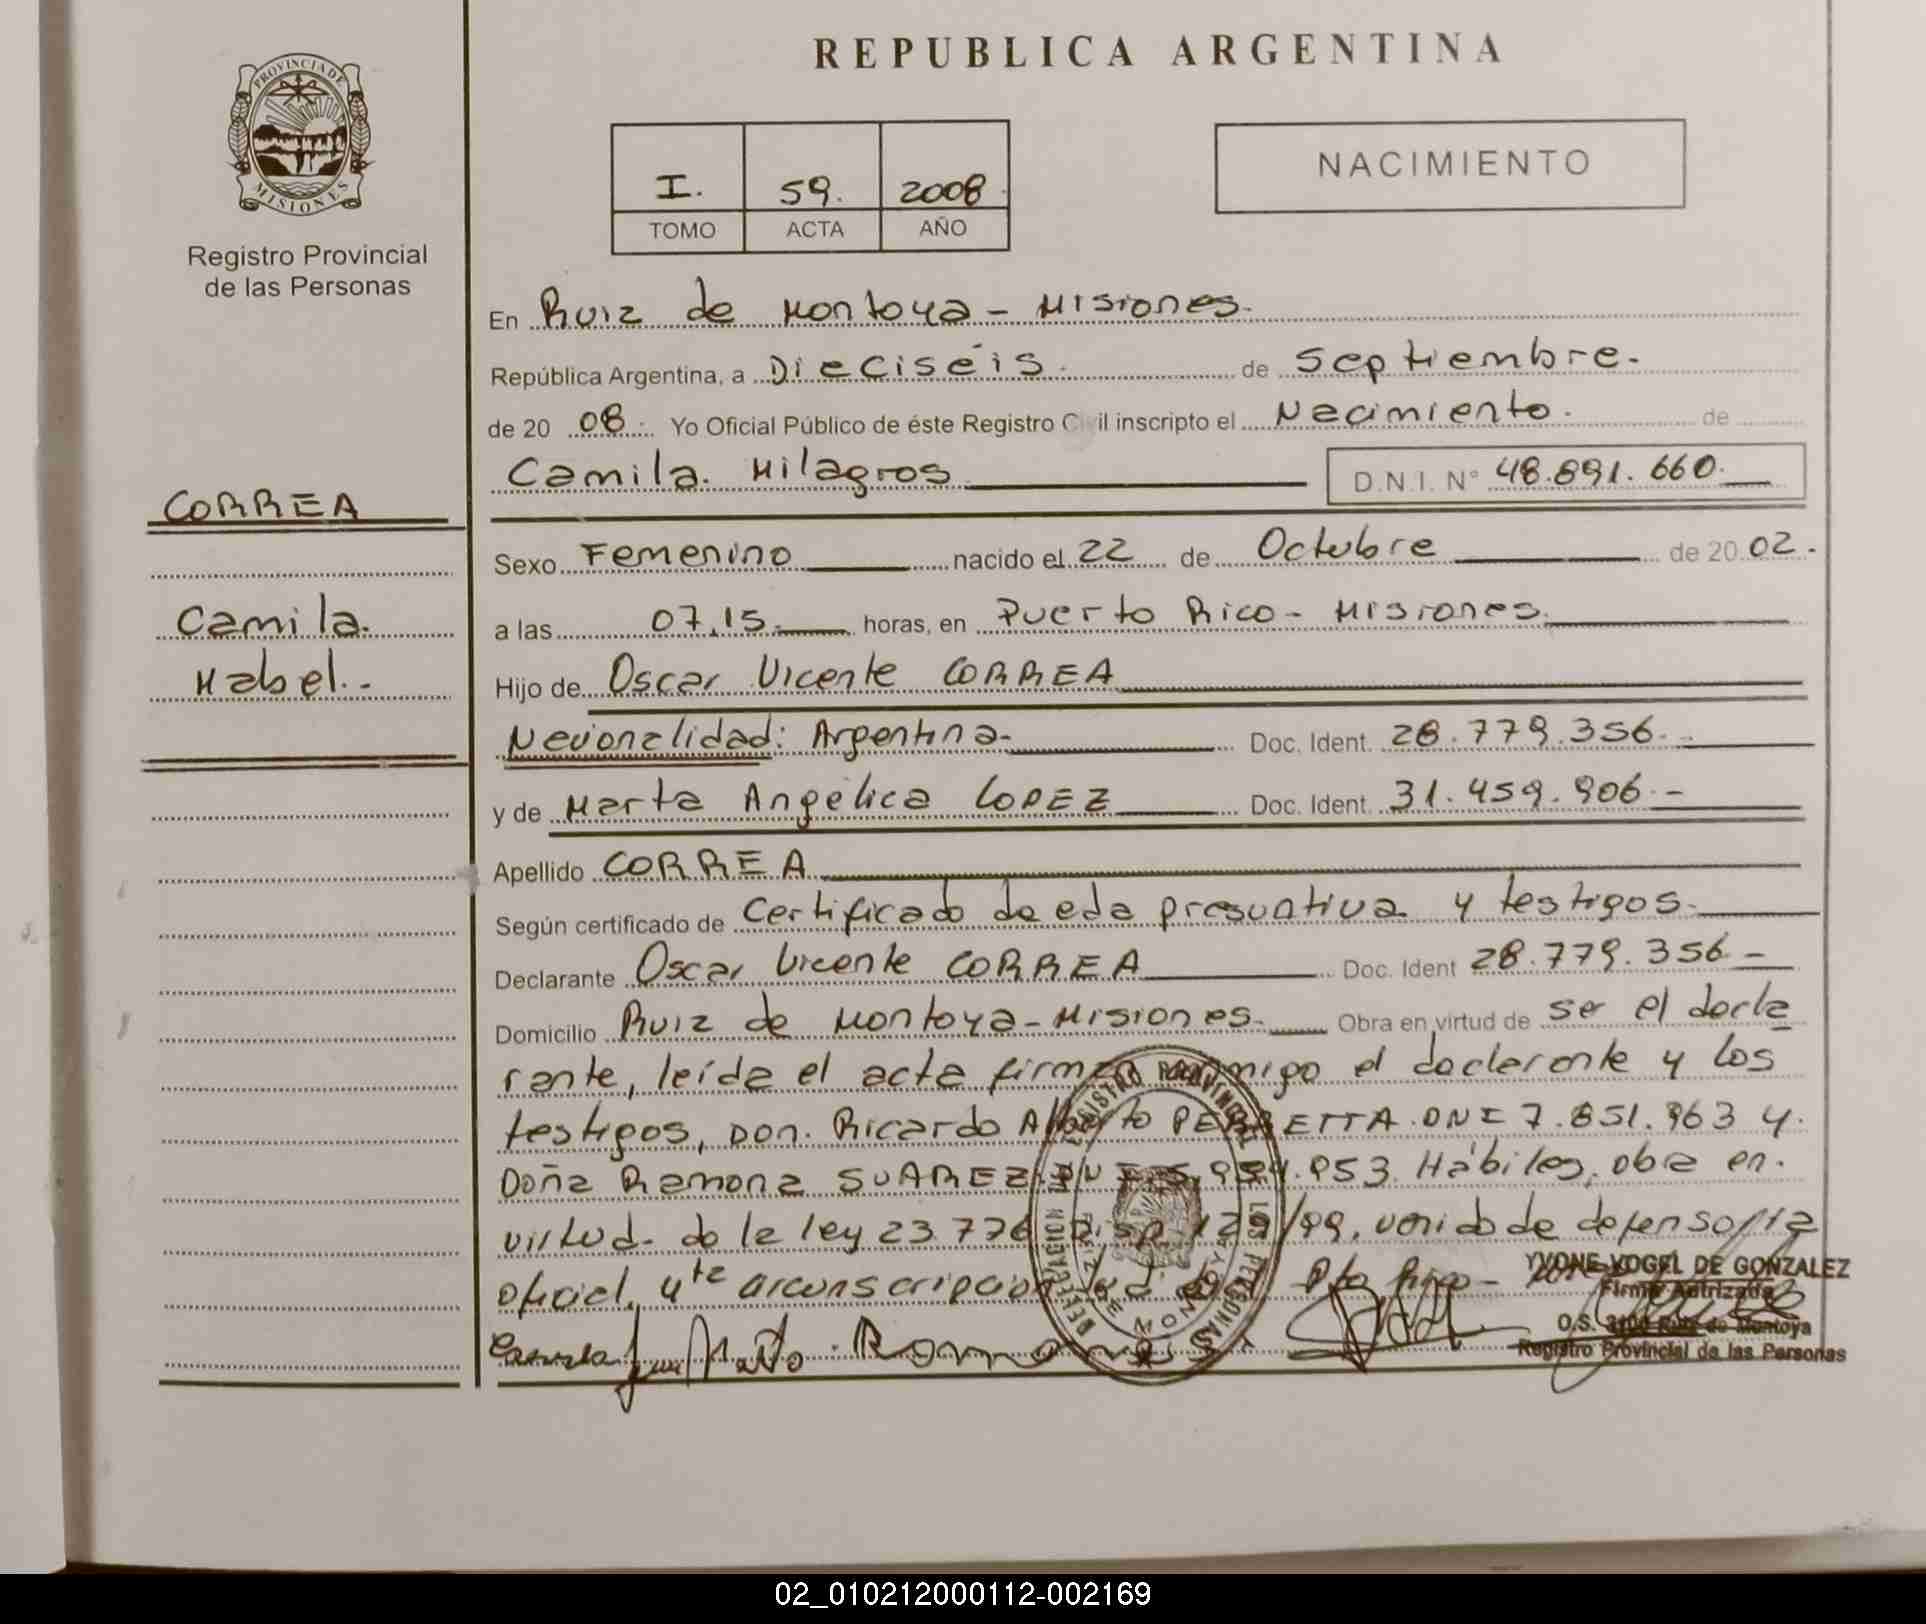 REPUBLICA ARGENTINA
PROVINCIA DE
MISIONES
Registro Provincial
de las Personas
I. 59. 2008
TOMO ACTA AÑO
NACIMIENTO
CORREA
Camila.
Mabel.-
En Ruiz de Montoya - Misiones.
República Argentina, a Dieciséis. de Septiembre.
de 20 08. Yo Oficial Público de éste Registro Civil inscripto el Nacimiento. de
Camila. Milagros D.N.I. N° 48.891.660.
Sexo Femenino nacido el 22 de Octubre de 20 02.
a las 07,15. horas, en Puerto Rico - Misiones.
Hijo de Oscar Vicente CORREA
Nacionalidad: Argentina- Doc. Ident. 28.779.356.-
y de Marta Angélica LOPEZ Doc. Ident. 31.459.906.-
Apellido CORREA
Según certificado de Certificado de eda presuntiva y testigos.
Declarante Oscar Vicente CORREA Doc. Ident 28.779.356.-
Domicilio Ruiz de Montoya - Misiones. Obra en virtud de ser el decla
rante, leída el acta firman conmigo el declarante y los
testigos, Don. Ricardo Alberto DNI 7.851.963 y.
Doña Ramona SUAREZ Hábiles, obra en.
virtud. de la ley 23.776 Disp 129/99, venido de defensoria
oficial, 4ta circunscripcion Pto Rico -
YVONE VOGEL DE GONZALEZ
Firma Autrizada
O.S. 3100 Ruiz de Montoya
Registro Provincial de las Personas
02_010212000112-002169